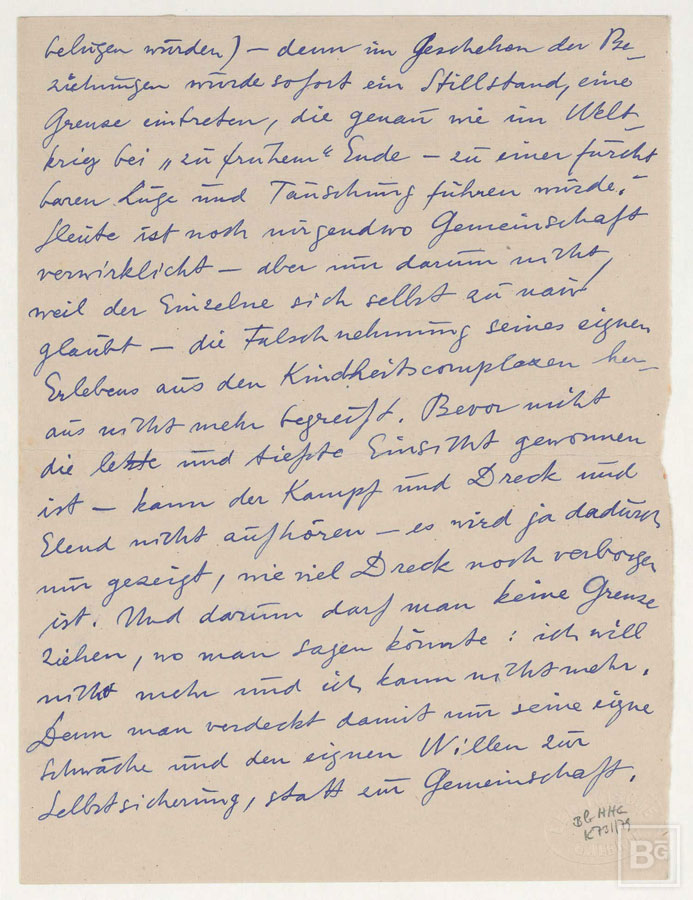 belügen würden) – denn im Geschehen der Be-
ziehungen würde sofort ein Stillstand, eine
Grenze eintreten, die genau wie im Welt-
krieg bei „zu frühem“ Ende – zu einer furcht
baren Lüge und Täuschung führen würde.
Heute ist noch nirgendwo Gemeinschaft
verwirklicht – aber nur darum nicht,
weil der Einzelne sich selbst zu naiv
glaubt – die Falschnehmung seines eignen
Erlebens aus den Kindheitscomplexen her-
aus nicht mehr begreift. Bevor nicht
die letzte und tiefste Einsicht gewonnen
ist – kann der Kampf und Dreck und
Elend nicht aufhören – es wird ja dadurch
nur gezeigt, wie viel Dreck noch verborgen
ist. Und darum darf man keine Grenze
ziehen, wo man sagen könnte: ich will
nicht mehr und ich kann nicht mehr.
Denn man verdeckt damit nur seine eigne
Schwäche und den eignen Willen zur
Selbstsicherung, statt zur Gemeinschaft.
BG HHC
K 731/79
BG